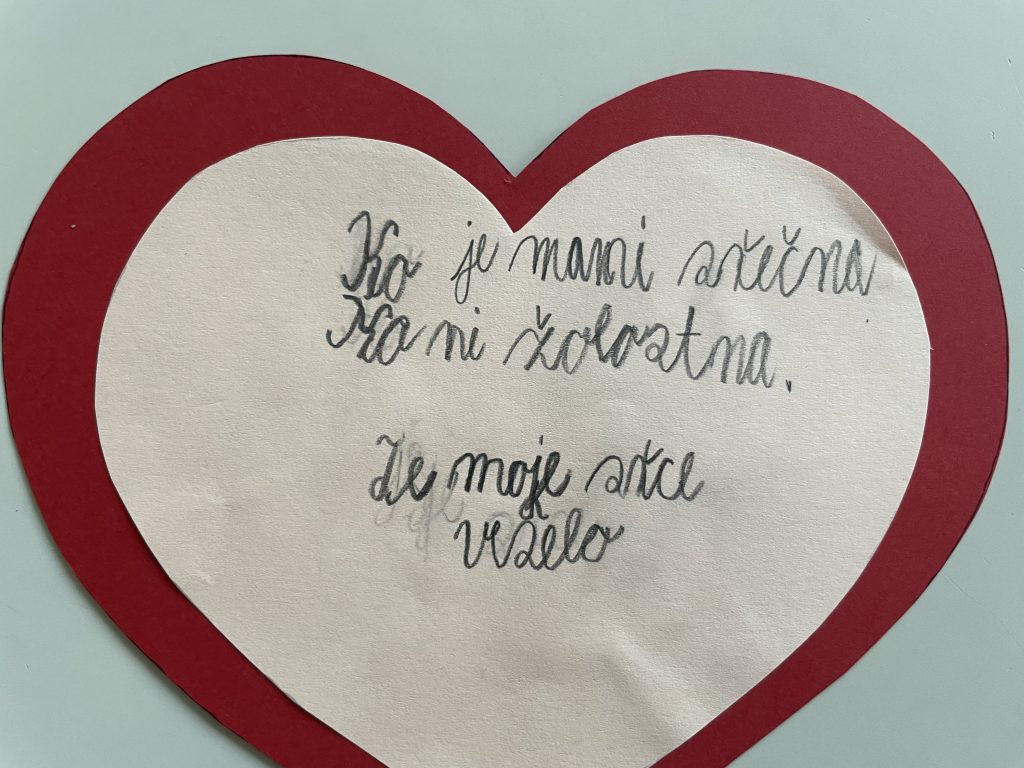 Ko je mami srečna
Ko ni žolostna.
Je moje srce
veselo